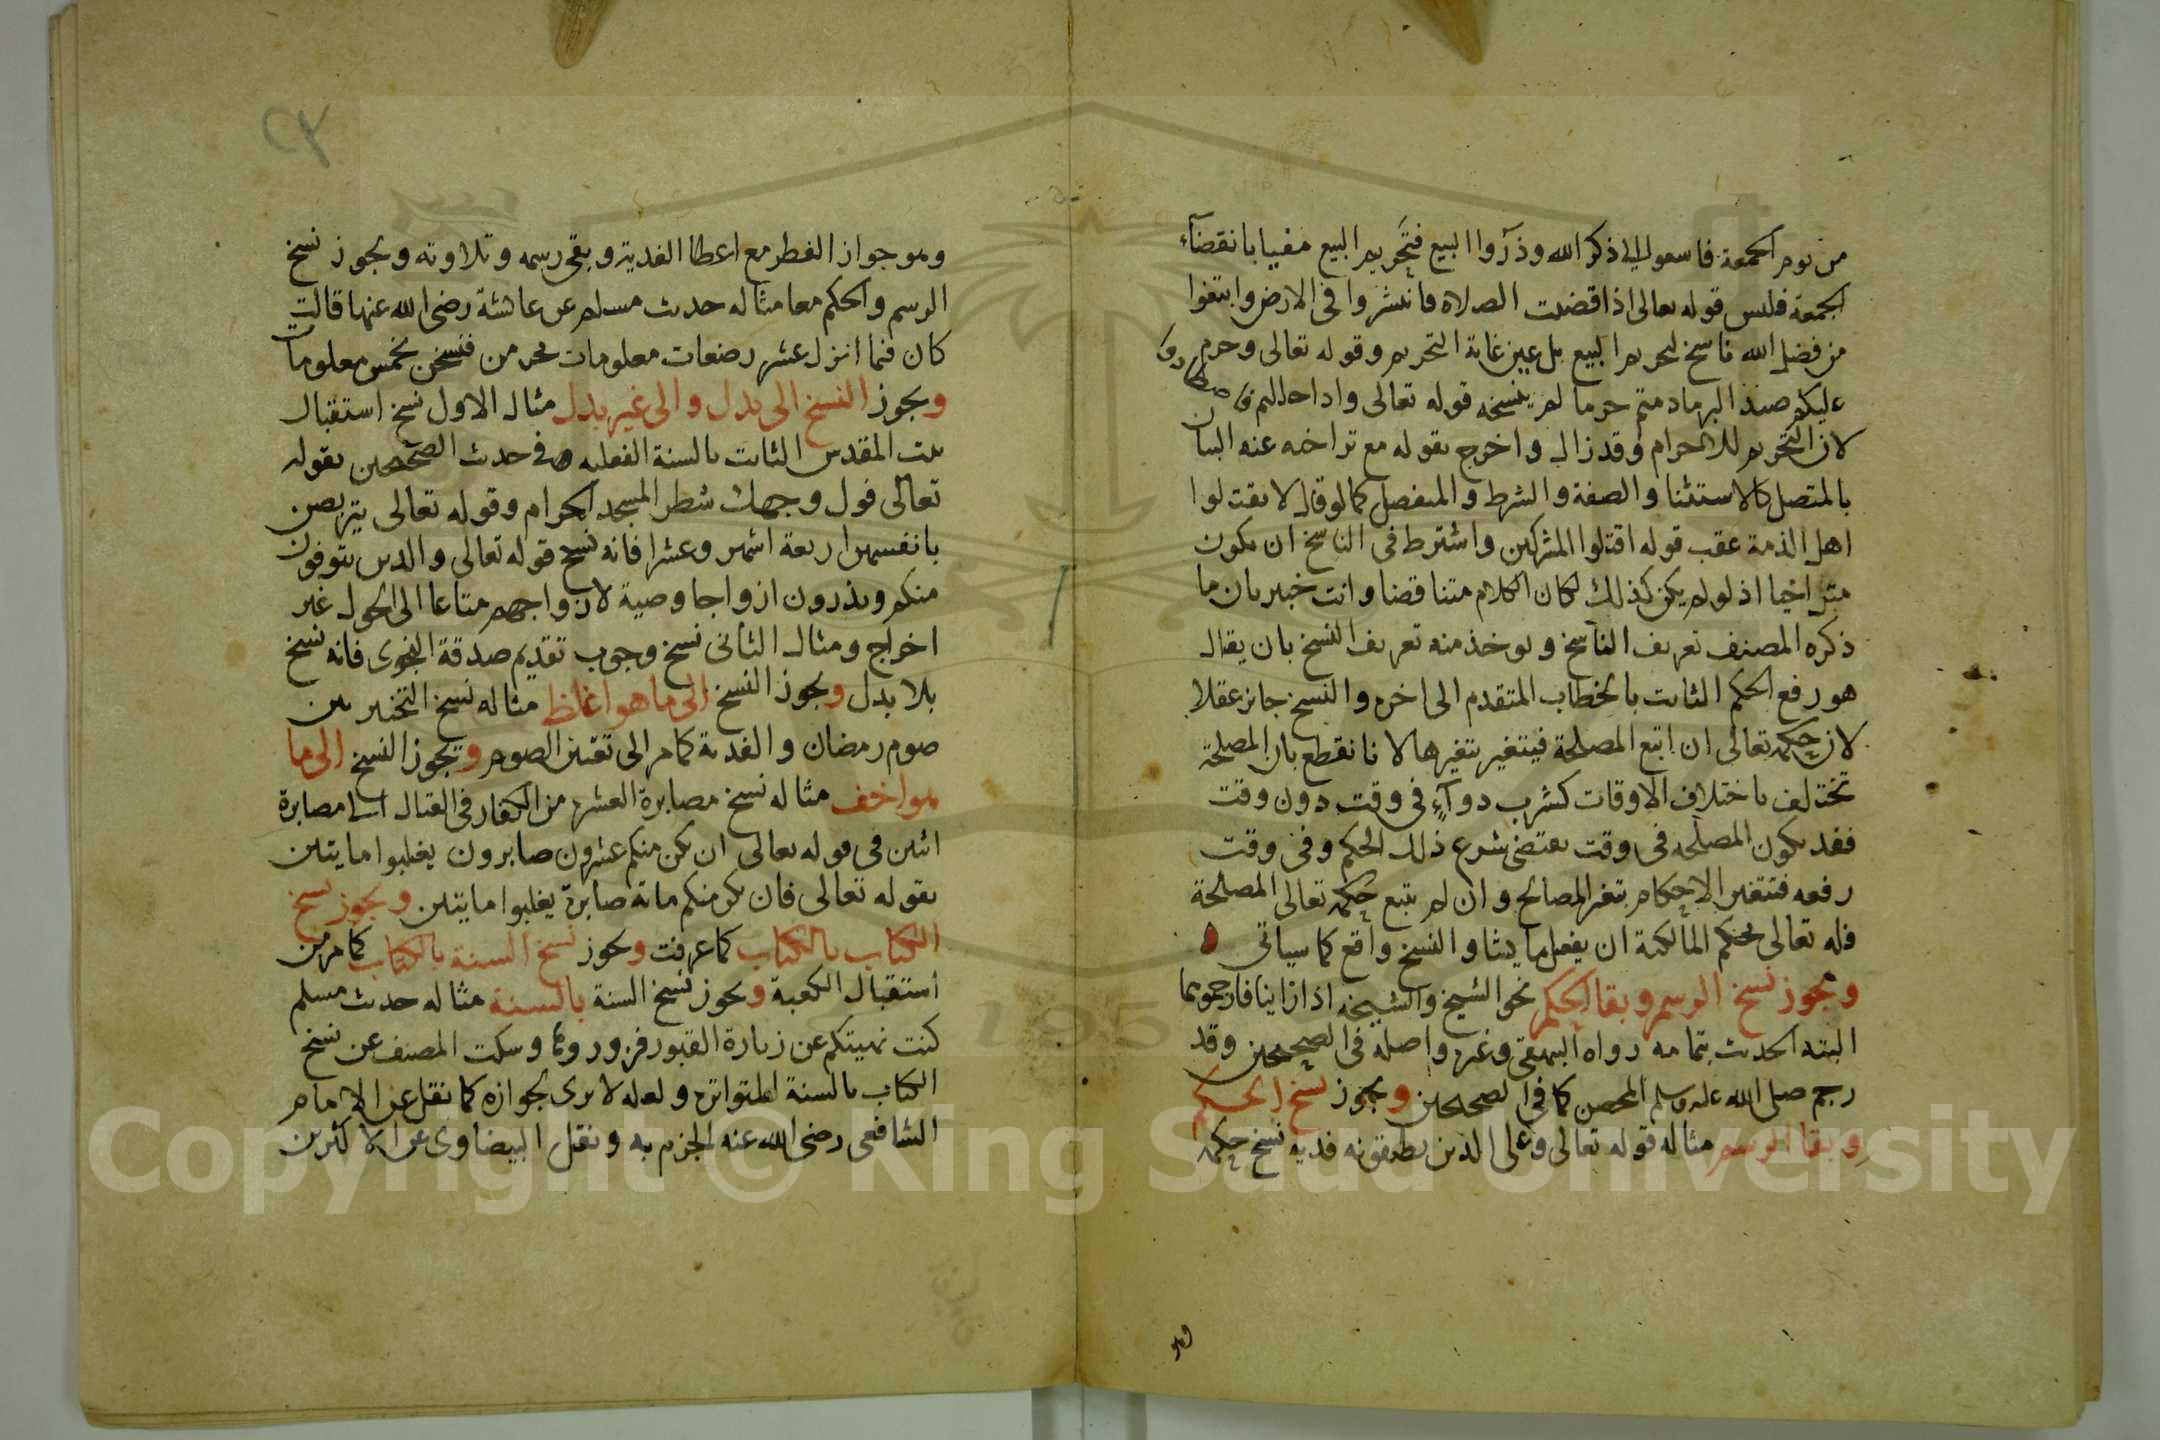 من يوم الجمعة فاسعوا الى ذكر الله وذروا البيع فتحريم البيع مغيا بانقضآء
الجمعة فليس قوله تعالى اذا قضيت الصلاة فانتشروا في الارض وابتغوا
من فضل الله ناسخ لتحريم البيع بل عين غاية التحريم وقوله تعالى وحرم
عليكم صيد البر ما دمتم حرما لم ينسخه قوله تعالى واذا حللتم فاصطادوا
لان التحريم للاحرام وقد زال واخرج بقوله مع تراخيه عنه البيان
بالمتصل كالاستثنا والصفة والشرط والمنفصل كما لو قال لا تقتلوا
اهل الذمة عقب قوله اقتلوا المشركين واشترط في الناسخ ان يكون
متراخيا اذ لو لم يكن كذلك لكان الكلام متناقضا وانت خبير بان ما
ذكره المصنف تعريف الناسخ ويوخذ منه تعريف النسخ بان يقال
هو رفع الحكم الثابت بالخطاب المتقدم الى اخره والنسخ جايز عقلا
لان حكمه تعالى ان اتبع المصلحة فيتغير بتغيرها لانا نقطع بان المصلحة
تختلف باختلاف الاوقات كشرب دوآء في وقت دون وقت
فقد يكون المصلحه في وقت يقتضي شرع ذلك الحكم وفي وقت
رفعه فتتغير الاحكام بتغير المصالح وان لم يتبع حكمه تعالى المصلحة
فله تعالى بحكم المالكية ان يفعل ما يشا والنسخ واقع كما سياتي
ويجوز نسخ الرسم وبقا الحكم نحو الشيخ والشيخه اذا زنيا فارجموهما
البته الحديث بتمامه رواه البيهقي وغيره واصله في الصحيحين وقد
رجم صلى الله عليه وسلم المحصن كما في الصحيحين ويجوز نسخ الحكم
وبقا الرسم مثاله قوله تعالى وعلى الذين يطيقونه فديه نسخ حكمه
وهو جواز الفطر مع اعطا الفدية وبقي رسمه وتلاوته ويجوز نسخ
الرسم والحكم معا مثاله حديث مسلم عن عائشة رضي الله عنها قالت
كان فيما انزل عشر رضعات معلومات يحرمن فنسخن بخمس معلومات
ويجوز النسخ الى بدل والى غير بدل مثال الاول نسخ استقبال
بيت المقدس الثابت بالسنة الفعليه في حديث الصحيحين بقوله
تعالى فول وجهك شطر المسجد الحرام وقوله تعالى يتربصن
بانفسهن اربعة اشهر وعشرا فانه نسخ قوله تعالى والذين يتوفون
منكم ويذرون ازواجا وصية لازواجهم متاعا الى الحول غير
اخراج ومثال الثاني نسخ وجوب تقديم صدقة النجوى فانه نسخ
بلا بدل ويجوز النسخ الى ما هو اغلظ مثاله نسخ التخيير بين
صوم رمضان والفدية كما مر الى تعين الصوم ويجوز النسخ الى ما
هو اخف مثاله نسخ مصابرة العشرة من الكفار في القتال الى مصابرة
اثنين في قوله تعالى ان يكن منكم عشرون صابرون يغلبوا مايتين
بقوله تعالى فان يكن منكم ماة صابرة يغلبوا مايتين ويجوز نسخ
الكتاب بالكتاب كما عرفت ويجوز نسخ السنة بالكتاب كما مر من
استقبال الكعبة ويجوز نسخ السنة بالسنة مثاله حديث مسلم
كنت نهيتكم عن زيارة القبور فزوروها وسكت المصنف عن نسخ
الكتاب بالسنة المتواترة ولعله لا يرى بجوازه كما نقل عن الامام
الشافعي رضي الله عنه الجزم به ونقل البيضاوي عن الاكثرين
وهو
Copyright © King Saud University
195